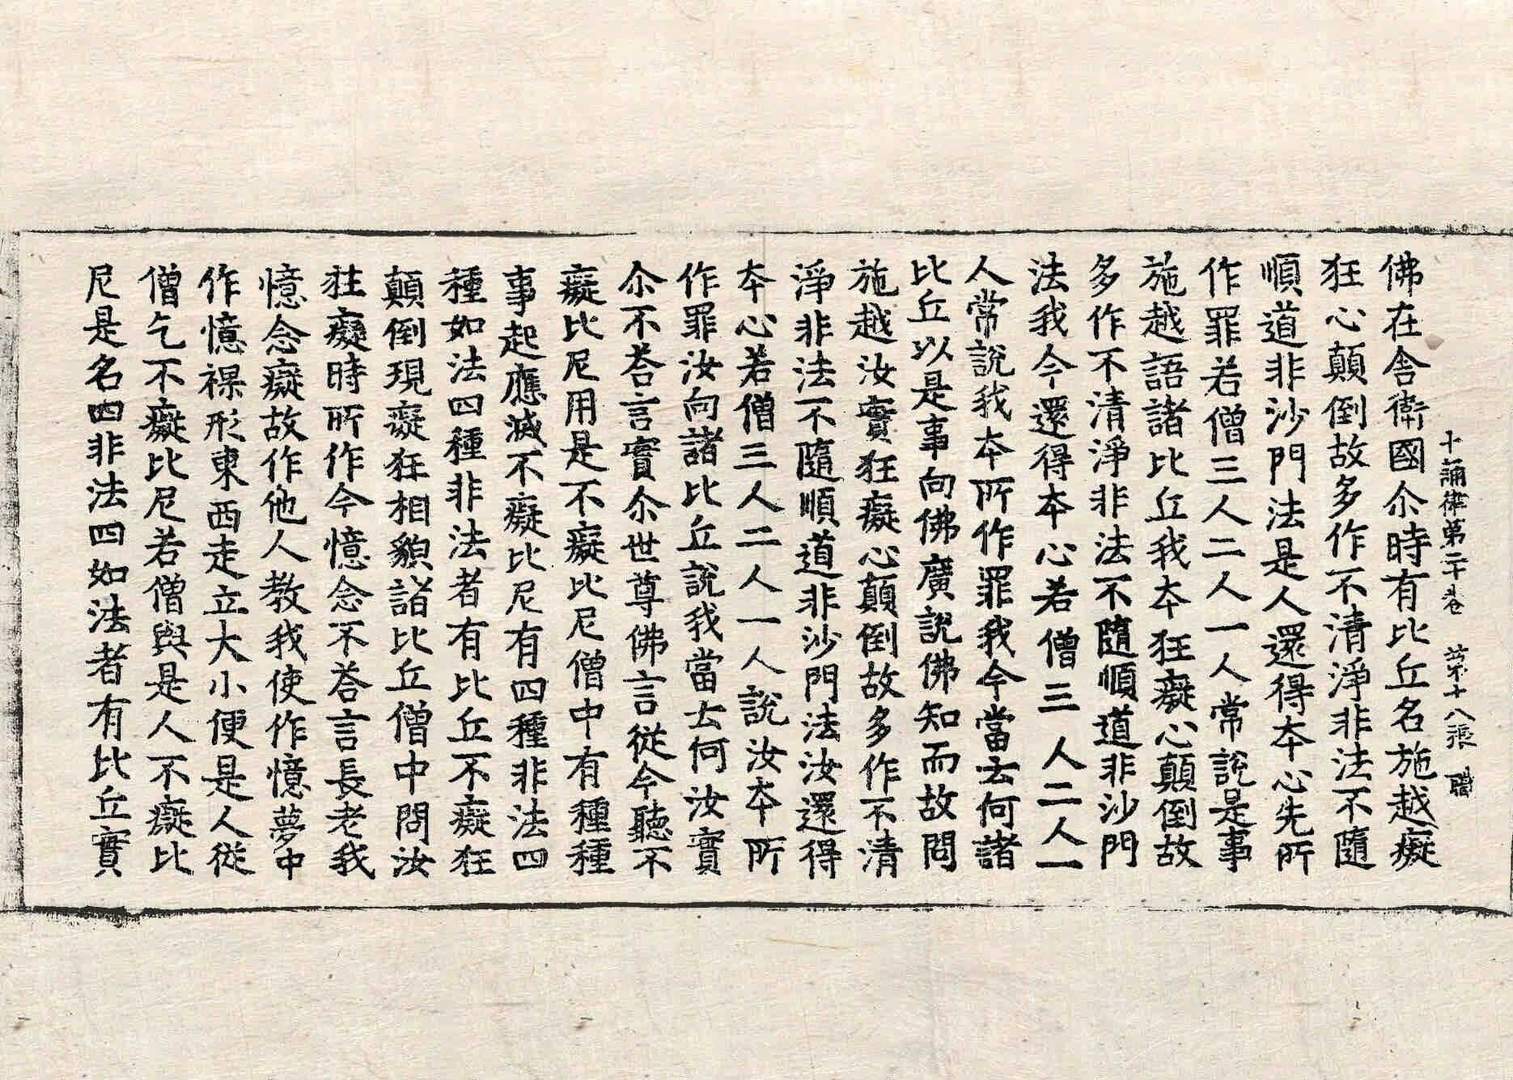 十誦律第二十卷　第十八張　職
佛在舍衛國尒時有比丘名施越癡
狂心顛倒故多作不清淨非法不隨
順道非沙門法是人還得本心先所
作罪若僧三人二人一人常說是事
施越語諸比丘我本狂癡心顛倒故
多作不清淨非法不隨順道非沙門
法我今還得本心若僧三人二人一
人常說我本所作罪我今當云何諸
比丘以是事向佛廣說佛知而故問
施越汝實狂癡心顛倒故多作不清
淨非法不隨順道非沙門法汝還得
本心若僧三人二人一人說汝本所
作罪汝向諸比丘說我當云何汝實
尒不荅言實尒世尊佛言從今聽不
癡比尼用是不癡比尼僧中有種種
事起應滅不癡比尼有四種非法四
種如法四種非法者有比丘不癡狂
顛倒現癡狂相貌諸比丘僧中問汝
狂癡時所作今憶念不荅言長老我
憶念癡故作他人教我使作憶夢中
作憶裸形東西走立大小便是人從
僧乞不癡比尼若僧與是人不癡比
尼是名四非法四如法者有比丘實